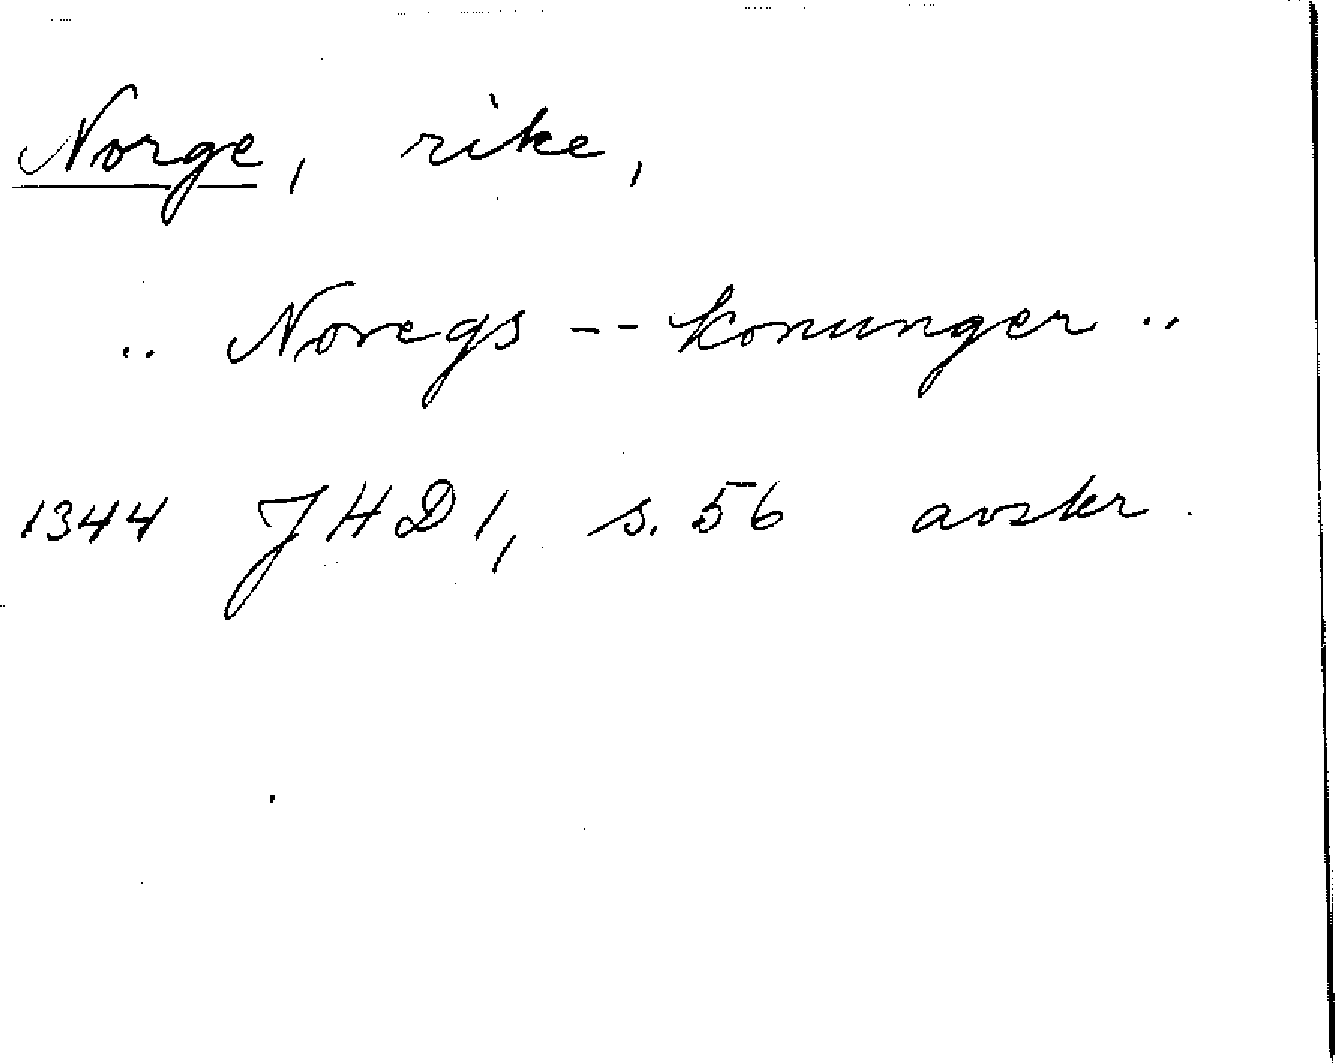 Norge, rike,
.. Noregs -- konunger ..
1344 JHD 1, s. 56 avskr.